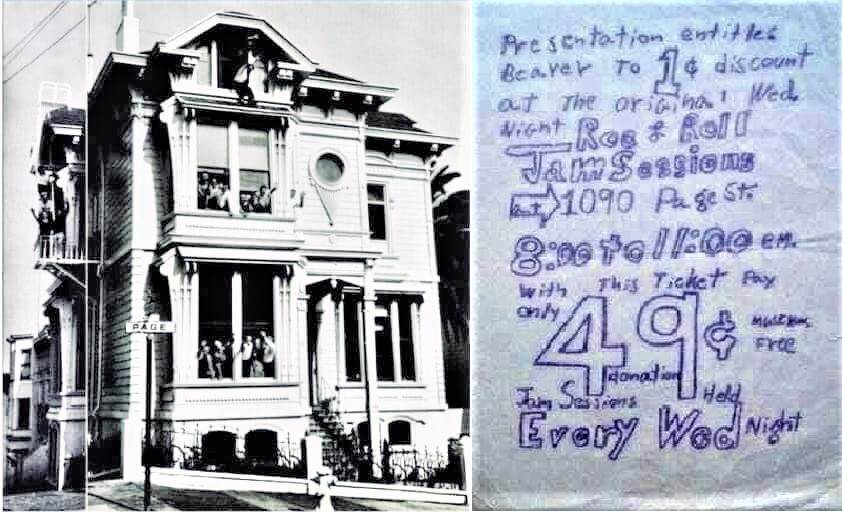 PAGE
Presentation entitles
Bearer To 1¢ discount
at The original Wed.
Night Roc & Roll
Jam Sessions
1090 Page St.
8:00 to 11:00 P.M.
With This Ticket Pay
only 49¢ Musicians
Free
donation
Jam Sessions Held
Every Wed Night